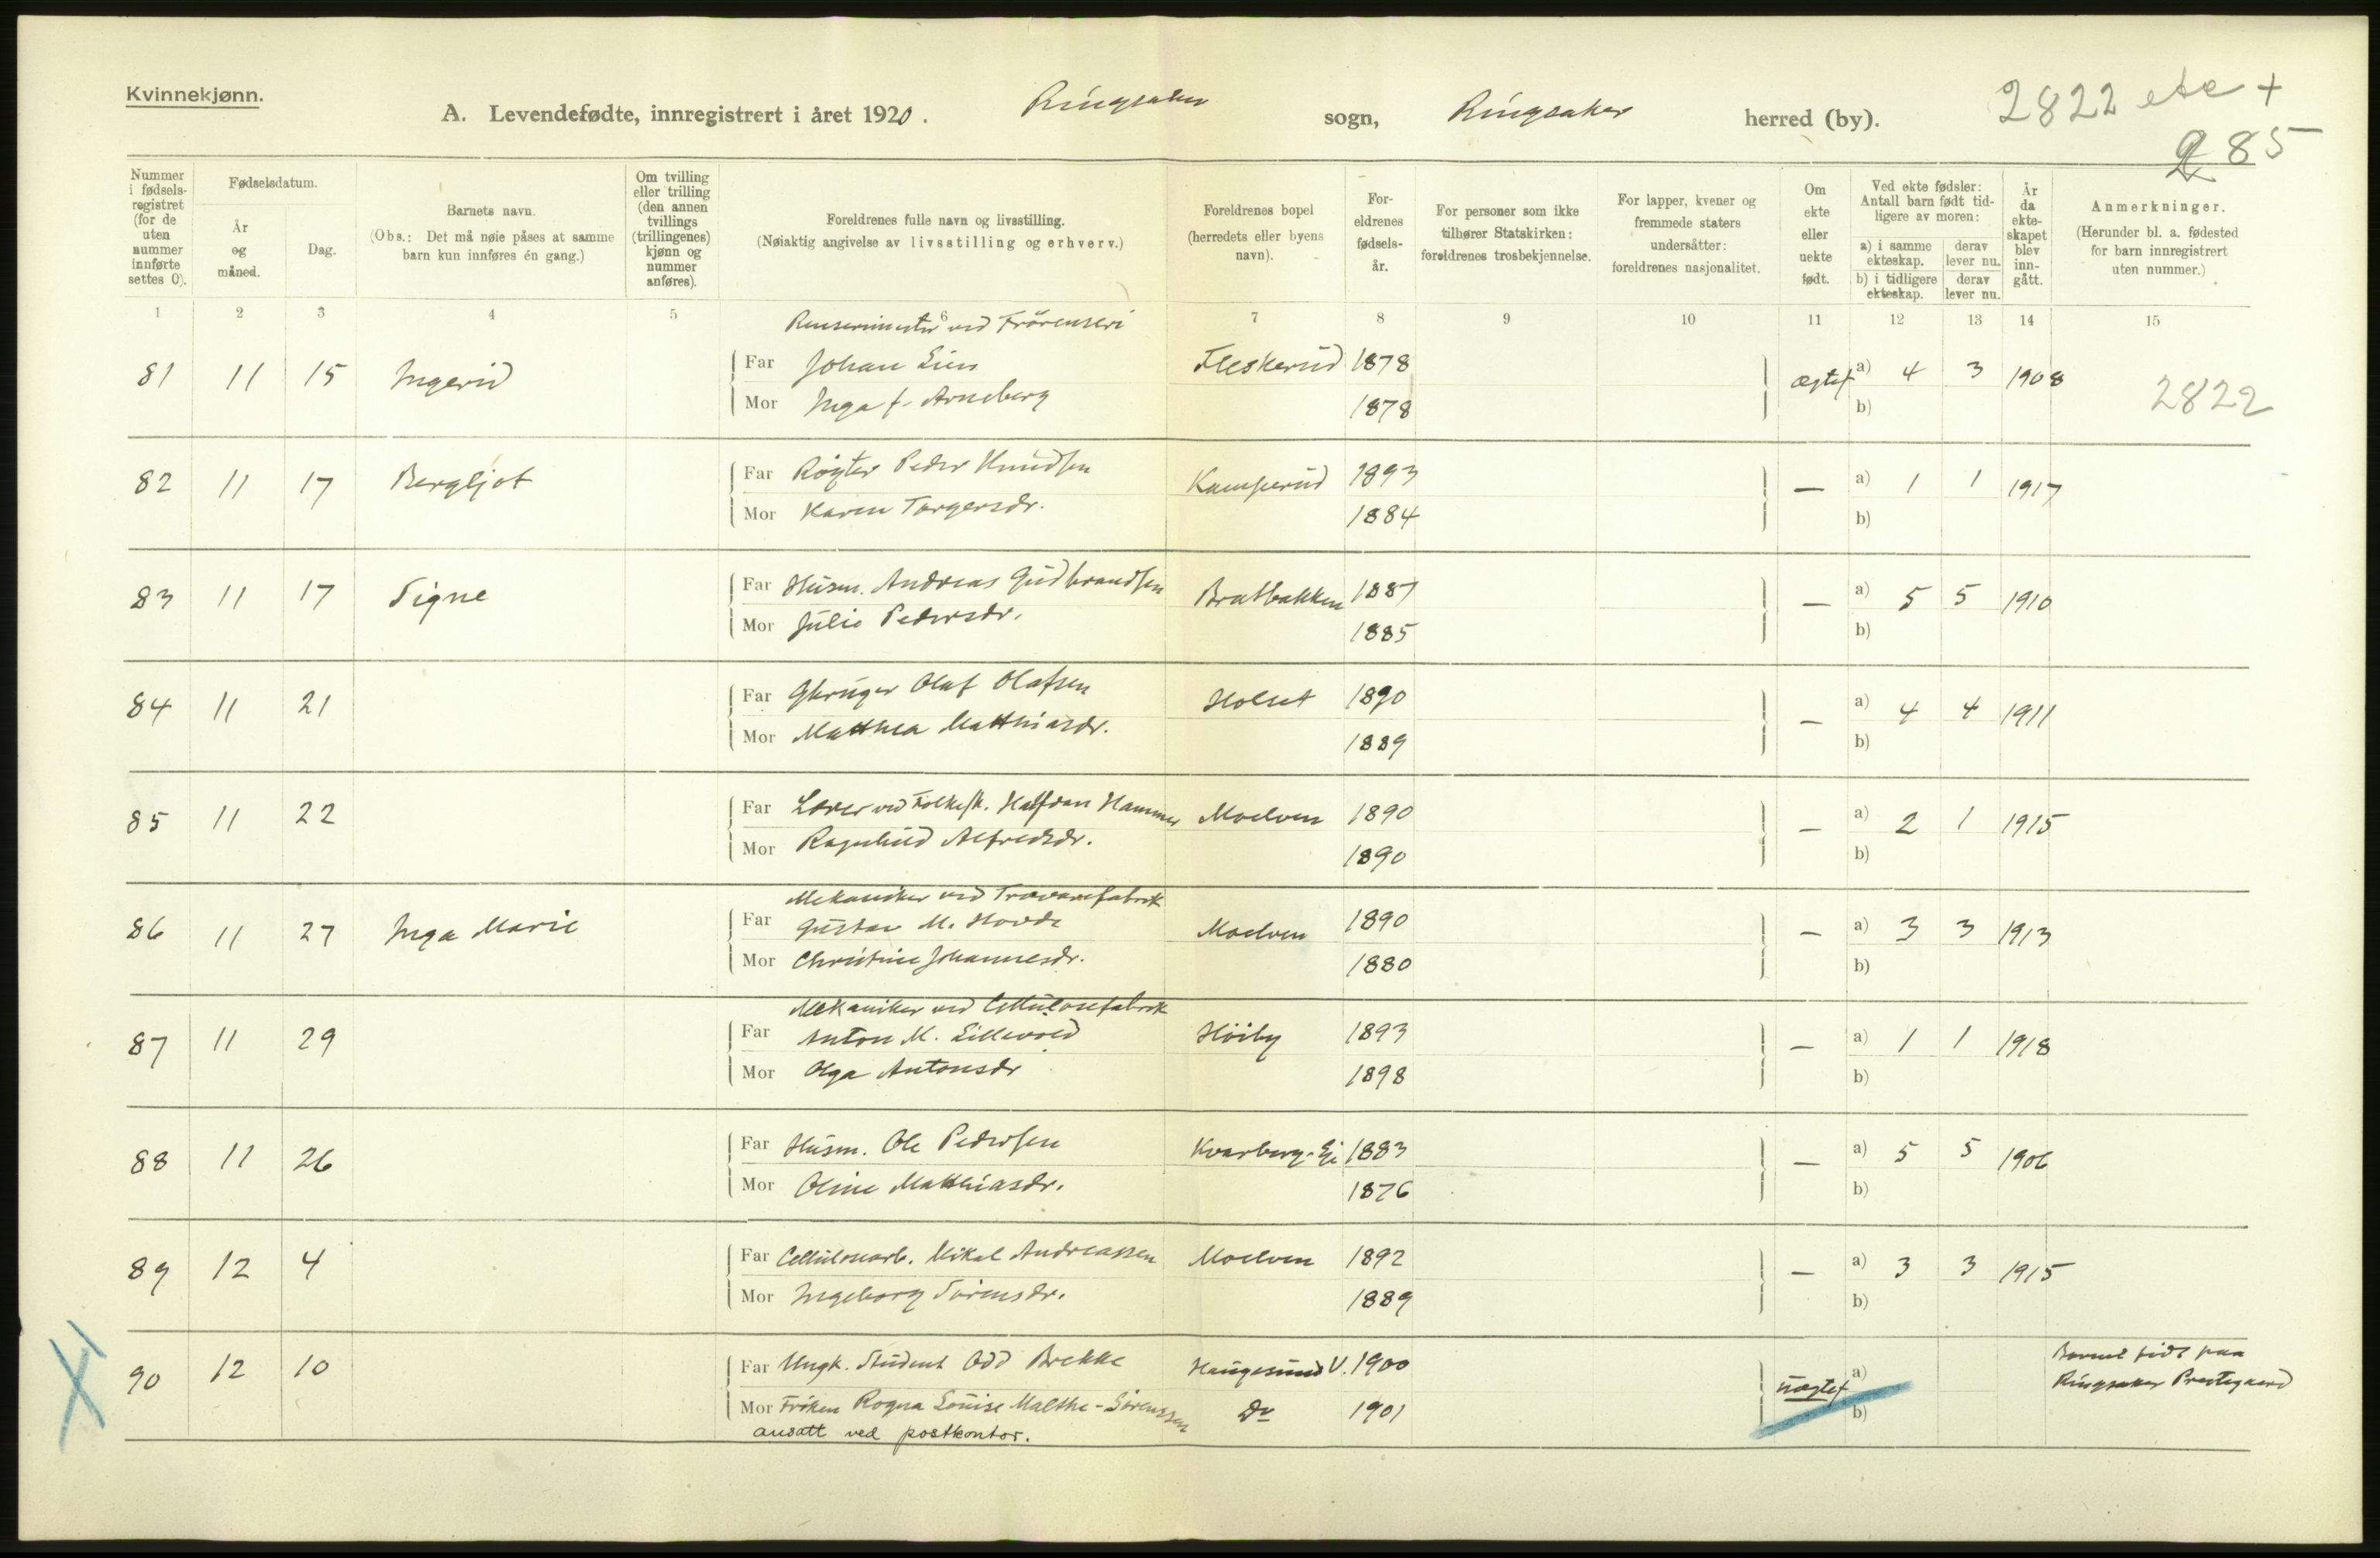 Kvinnekjønn.
A. Levendefødte, innregistrert i året 1920. Ringsaker sogn, Ringsaker herred (by).
2822 ete +
285
Nummer i fødsels-registret (for de uten nummer innførte settes 0).
Fødselsdatum.
År og måned.
Dag.
Barnets navn.
(Obs.: Det må nøie påses at samme barn kun innføres én gang.)
Om tvilling eller trilling (den annen tvillings (trillingenes) kjønn og nummer anføres).
Foreldrenes fulle navn og livsstilling.
(Nøiaktig angivelse av livsstilling og erhverv.)
Foreldrenes bopel (herredets eller byens navn).
For-eldrenes fødsels-år.
For personer som ikke tilhører Statskirken: foreldrenes trosbekjennelse.
For lapper, kvener og fremmede staters undersåtter: foreldrenes nasjonalitet.
Om ekte eller uekte født.
Ved ekte fødsler: Antall barn født tid-ligere av moren:
a) i samme ekteskap. derav lever nu.
b) i tidligere ekteskap. derav lever nu.
År da ekte-skapet blev inn-gått.
Anmerkninger.
(Herunder bl. a. fødested for barn innregistrert uten nummer.)
1 2 3 4 5 6 7 8 9 10 11 12 13 14 15
Rensermester ved Frörenseri
81 11 15 Ingerid Far Johan Lien Fleskerud 1878 ægtef a) 4 3 1908 2822
Mor Inga f. Arneberg 1878 b)
82 11 17 Bergljot Far Røgter Peder Knudsen Kamperud 1893 — a) 1 1 1917
Mor Karen Torgersdr. 1884 b)
83 11 17 Signe Far Husm. Andreas Gudbrandsen Bratbakken 1887 — a) 5 5 1910
Mor Julie Pedersdr. 1885 b)
84 11 21 Far Olaf Olafsen Holset 1890 — a) 4 4 1911
Mor Matthea Matthiasdr. 1889 b)
85 11 22 Far Lærer ved Folkesk. Halfdan Hammer Moelven 1890 — a) 2 1 1915
Mor Ragnhild Alfredsdr. 1890 b)
Mekaniker ved Trævarefabrik
86 11 27 Inga Marie Far Gustav M. Hovde Moelven 1890 — a) 3 3 1913
Mor Christine Johannesdr. 1880 b)
Mekaniker ved Cellulosefabrik
87 11 29 Far Anton M. Lillevold Höiby 1893 — a) 1 1 1918
Mor Olga Antonsdr 1898 b)
88 11 26 Far Husm. Ole Pedersen Kvarberg-Ei 1883 — a) 5 5 1906
Mor Oline Matthiasdr. 1876 b)
89 12 4 Far Cellulosearb. Mikal Andreassen Moelven 1892 — a) 3 3 1915
Mor Ingeborg Sörensdr. 1889 b)
90 12 10 Far Ungk. Student Odd Brekke Haugesund V. 1900 uægtef a) Barnet födt paa
Mor Fröken Rogna Louise Malthe-Sörenssen Do 1901 b) Ringsaker Prestegaard
ansatt ved postkontor.